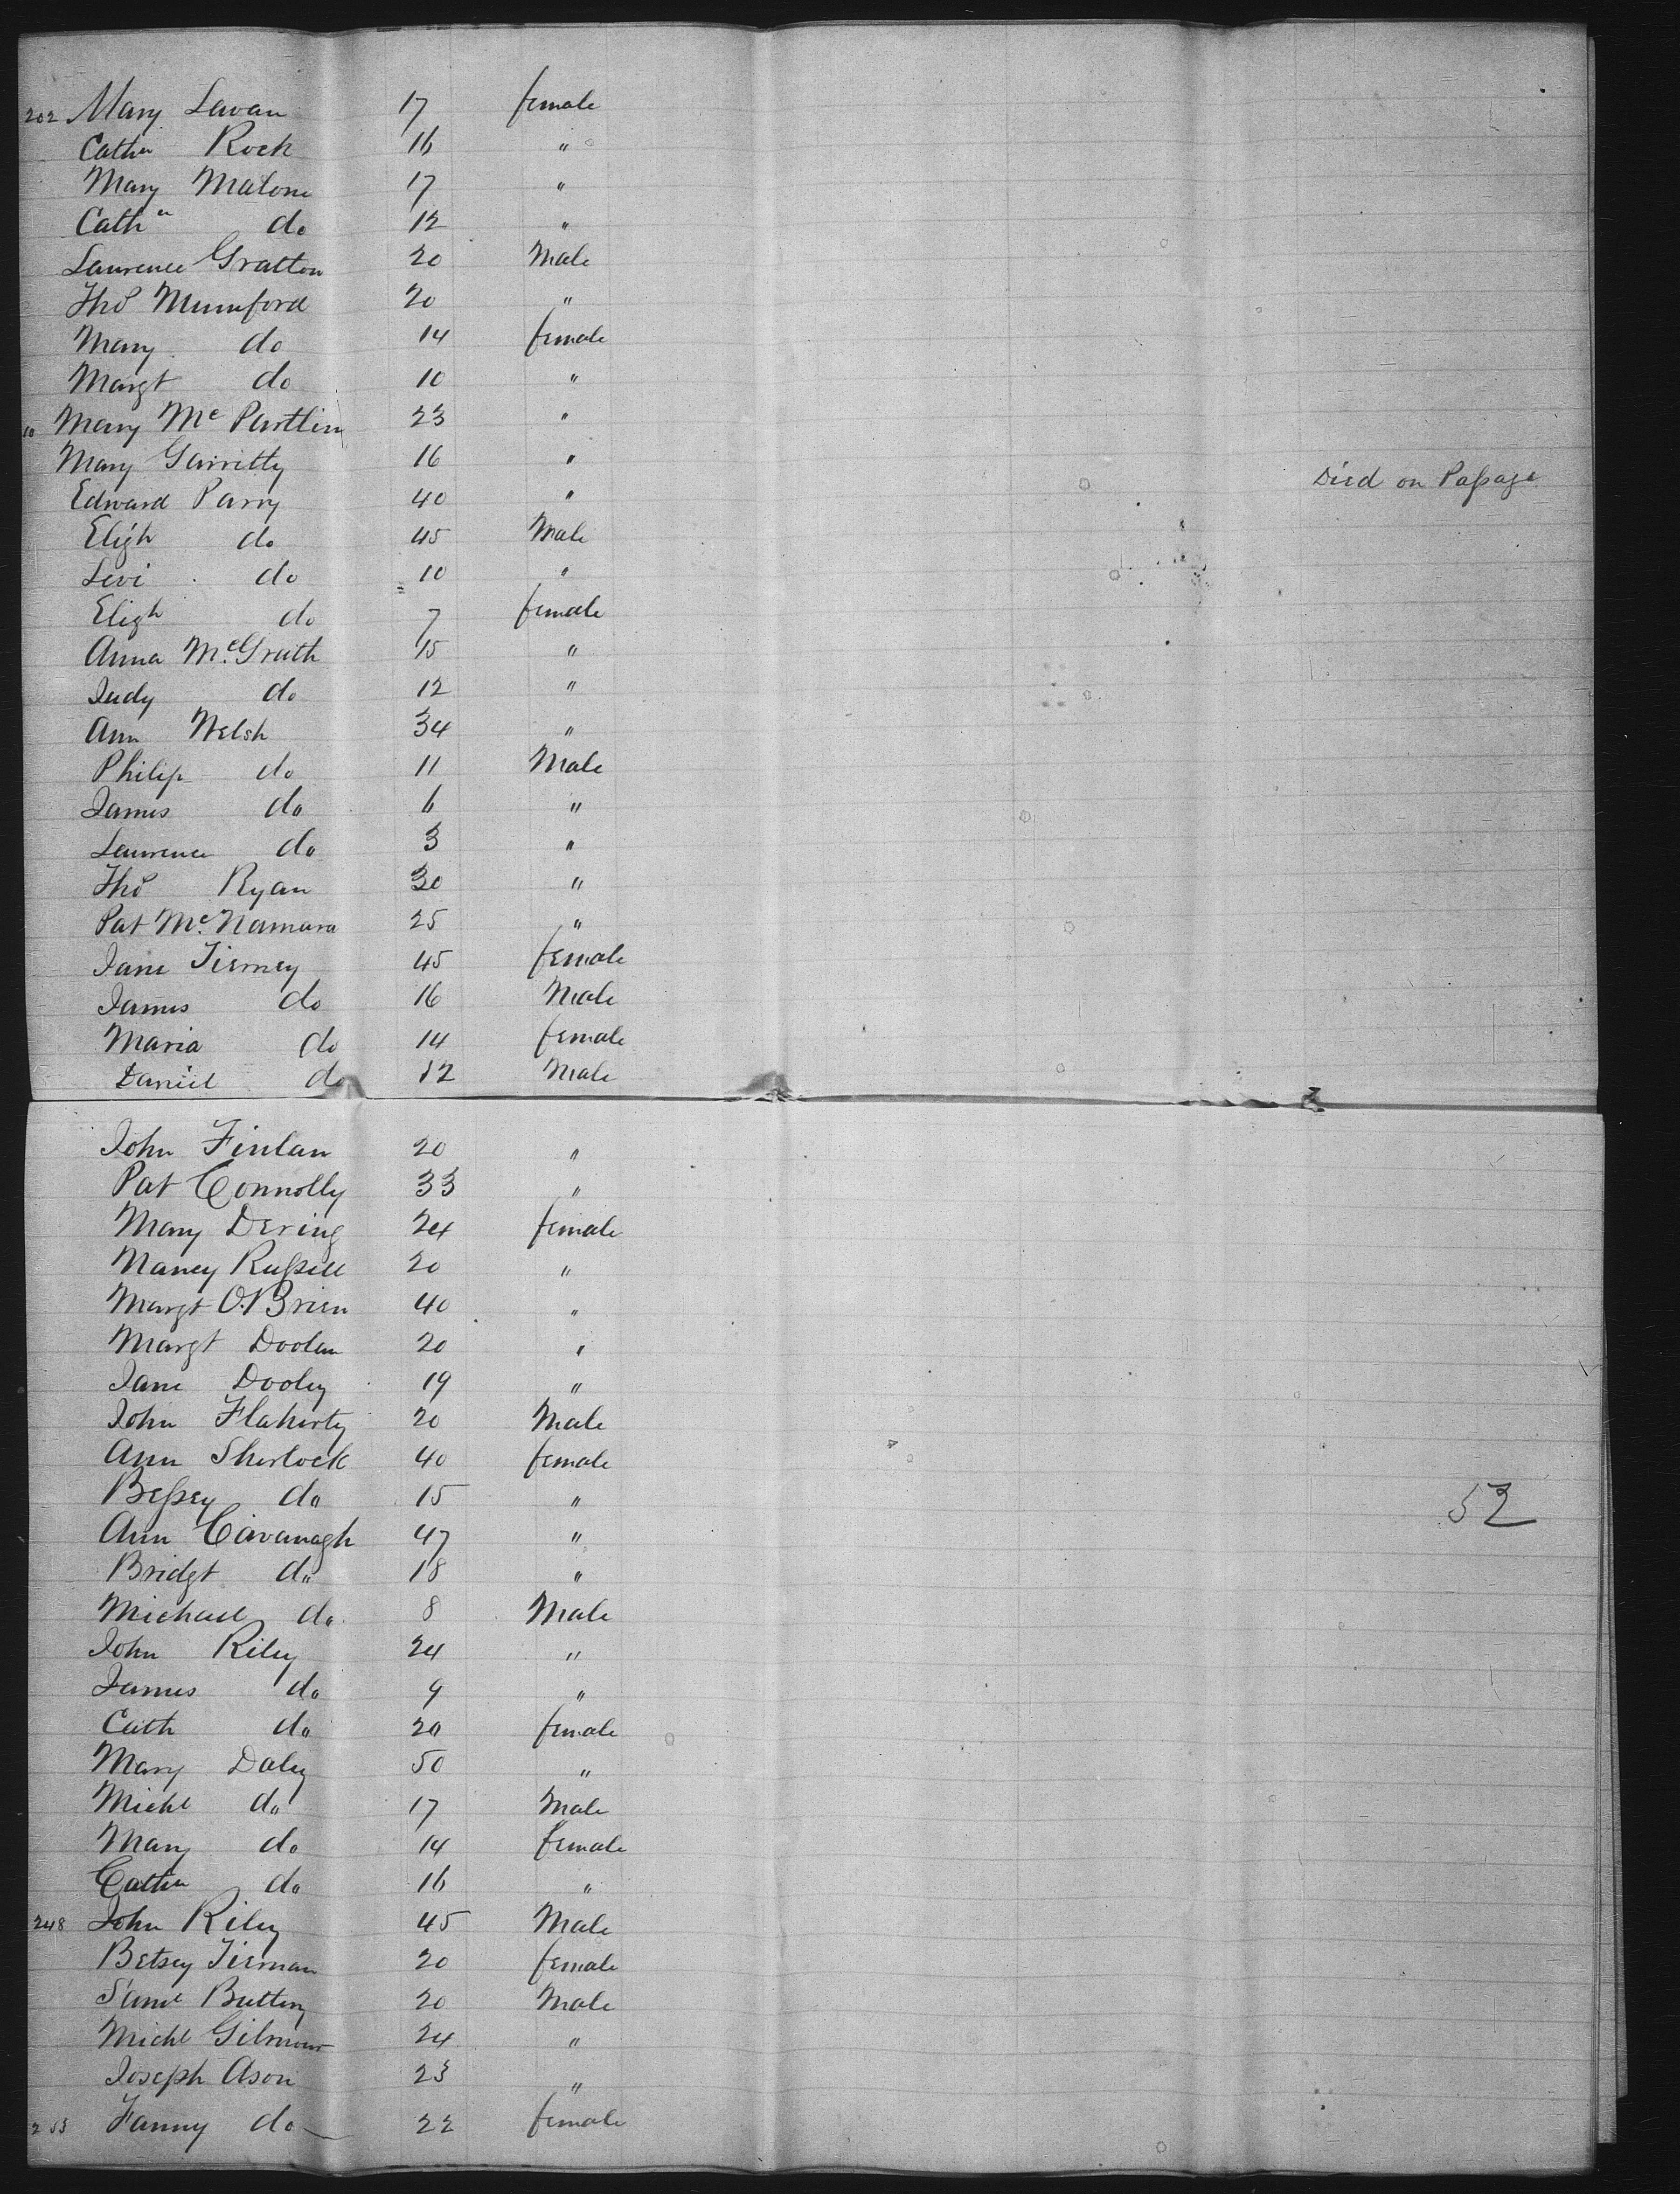 202 Mary Lavan 17 female
Cathn Rock 16 "
Mary Malone 17 "
Cathn do 12 "
Laurence Gratton 20 Male
Thos Mumford 20 "
Mary do 14 female
Margt do 10 "
10 Mary McPartlin 23 "
Mary Garritty 16 "
Edward Parry 40 " Died on Paſsage
Eligh do 45 Male
Levi do 10 "
Eligh do 7 female
Anna McGrath 15 "
Judy do 12 "
Ann Welsh 34 "
Philip do 11 Male
James do 6 "
Laurence do 3 "
Thos Ryan 30 "
Pat McNamara 25 "
Jane Tierney 45 female
James do 16 Male
Maria do 14 female
Daniel do 12 Male
John Finlan 20 "
Pat Connolly 33 "
Mary Dering 24 female
Nancy Ruſsell 20 "
Margt O.Brien 40 "
Margt Doolan 20 "
Jane Dooley 19 "
John Flaherty 20 Male
Ann Sherlock 40 female
Beſsey do 15 "
52
Ann Cavanagh 47 "
Bridgt do 18 "
Michael do 8 Male
John Riley 24 "
James do 9 "
Cath do 20 female
Mary Daley 50 "
Michl do 17 Male
Mary do 14 female
Cathn do 16 "
248 John Riley 45 Male
Betsey Tiernan 20 female
Saml 20 Male
Michl Gilmour 24 "
Joseph Ason 23 "
253 Fanny do 22 female